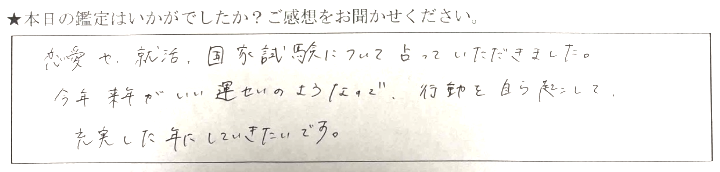 ★本日の鑑定はいかがでしたか？ご感想をお聞かせください。
恋愛や、就活、国家試験について占っていただきました。
今年来年がいい運せいのようなので、行動を自ら起こして、
充実した年にしていきたいです。